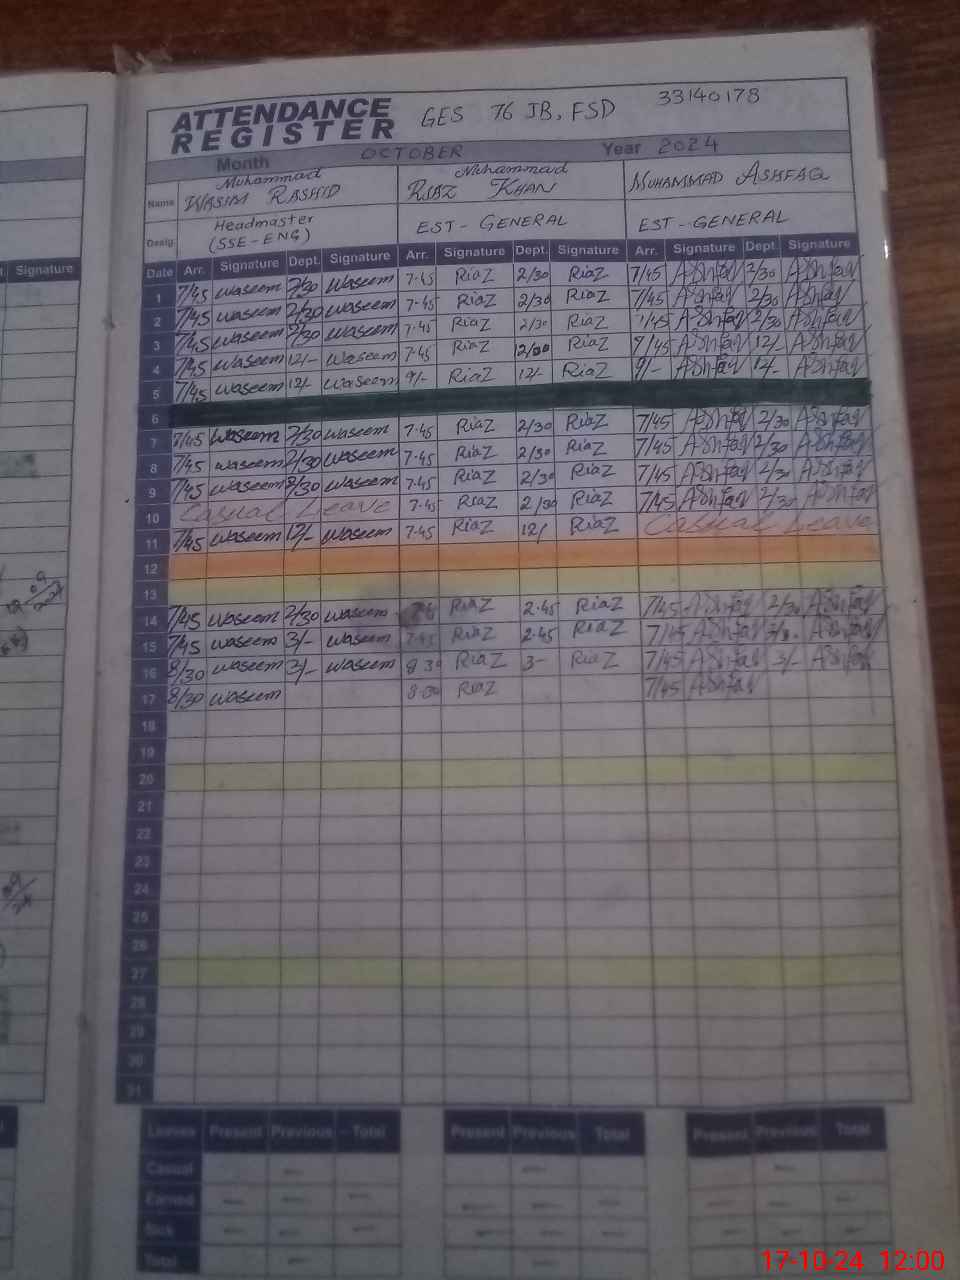 ATTENDANCE REGISTER GES 76 JB, FSD 33140178
Month OCTOBER Year 2024
Name Muhammad WASIM RASHID Muhammad RIAZ KHAN MUHAMMAD ASHFAQ
Desig. Headmaster (SSE-ENG) EST-GENERAL EST-GENERAL
Signature
Date Arr. Signature Dept. Signature Arr. Signature Dept. Signature Arr. Signature Dept. Signature
1 7/45 waseem 2/30 waseem 7-45 RiaZ 2/30 RiaZ 7/45 Ashfaq 2/30 Ashfaq
2 7/45 waseem 2/30 waseem 7-45 RiaZ 2/30 RiaZ 7/45 Ashfaq 2/30 Ashfaq
3 7/45 waseem 2/30 waseem 7-45 RiaZ 2/30 RiaZ 7/45 Ashfaq 2/30 Ashfaq
4 7/45 waseem 12/- waseem 7-45 RiaZ 12/00 RiaZ 7/45 Ashfaq 12/- Ashfaq
5 7/45 waseem 12/- waseem 9/- RiaZ 12/- RiaZ 9/- Ashfaq 12/- Ashfaq
6
7 7/45 waseem 2/30 waseem 7-45 RiaZ 2/30 RiaZ 7/45 Ashfaq 2/30 Ashfaq
8 7/45 waseem 2/30 waseem 7-45 RiaZ 2/30 RiaZ 7/45 Ashfaq 2/30 Ashfaq
9 7/45 waseem 2/30 waseem 7-45 RiaZ 2/30 RiaZ 7/45 Ashfaq 2/30 Ashfaq
10 Casual Leave 7-45 RiaZ 2/30 RiaZ 7/45 Ashfaq 2/30 Ashfaq
11 7/45 waseem 12/- waseem 7-45 RiaZ 12/ RiaZ Casual Leave
12
13
14 7/45 waseem 2/30 waseem RiaZ 2.45 RiaZ 7/45 Ashfaq 2/30 Ashfaq
15 7/45 waseem 3/- waseem 7-45 RiaZ 2.45 RiaZ 7/45 Ashfaq Ashfaq
16 8/30 waseem 3/- waseem 8 30 RiaZ 3- RiaZ 7/45 Ashfaq 3/- Ashfaq
17 8/30 waseem 8-30 RiaZ 7/45 Ashfaq
18
19
20
21
22
23
24
25
26
27
28
29
30
31
Leaves Present Previous Total Present Previous Total Present Previous Total
Casual
Earned
Sick
Total
17-10-24 12:00